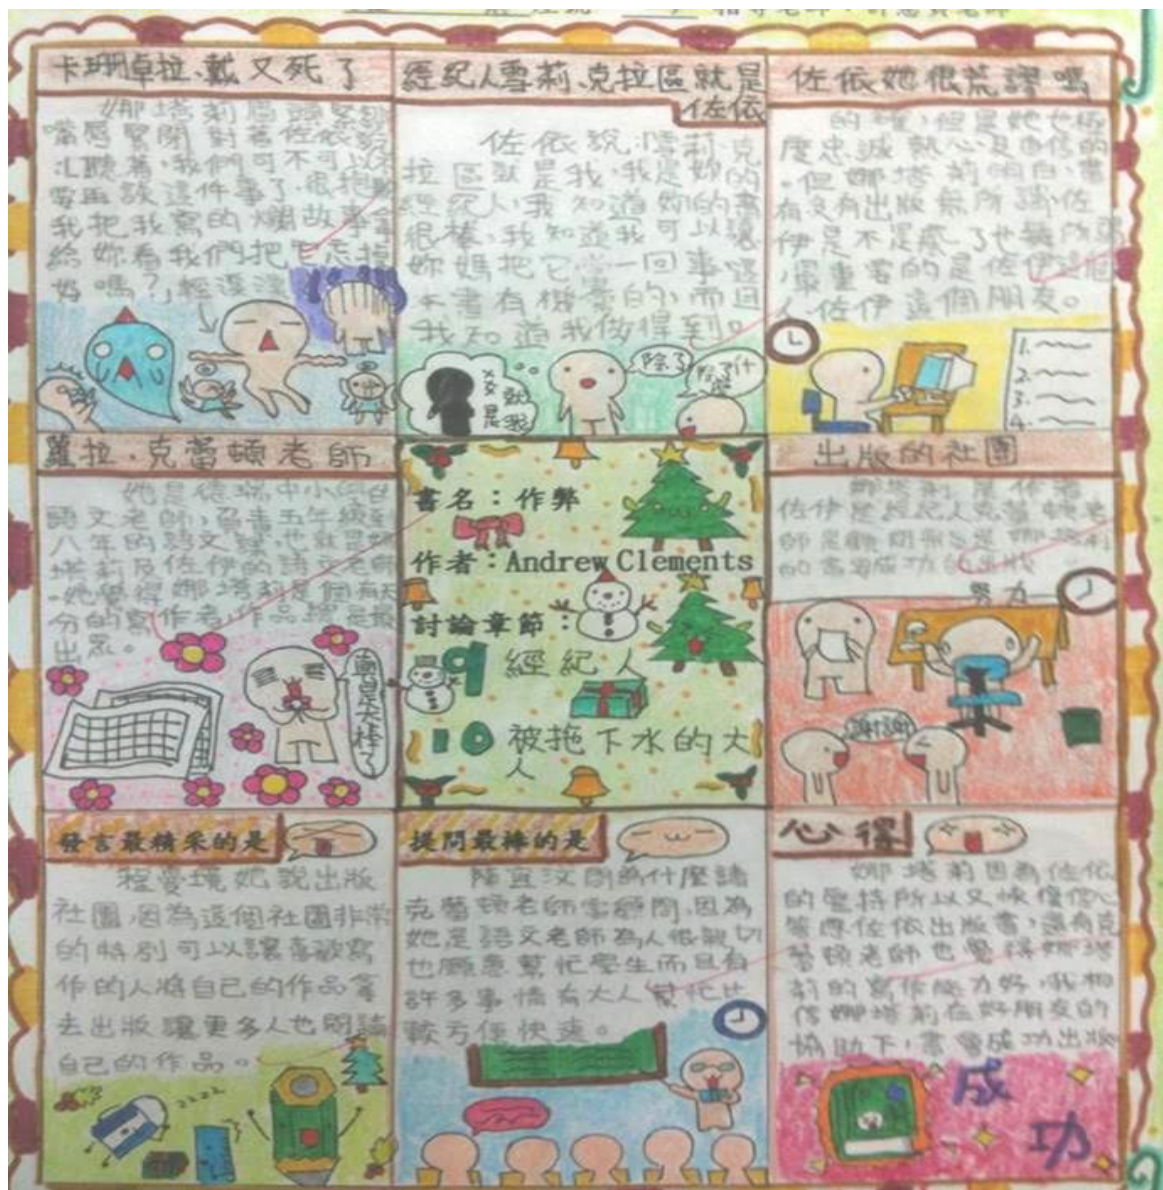 指導老師：許惠貞老師
卡珊卓拉、戴又死了
娜塔莉眉頭緊皺
嘴唇緊閉對著佐依說
:「聽著,我們可不可以不
要再談這件事了,很抱歉
我把我寫的爛故事拿
給妳看我們把它忘掉
好嗎?」輕漂漂
經紀人雪莉.克拉區就是
佐依
佐依說:「雪莉.克
拉區就是我,我是妳的
經紀人,我知道妳的書
很棒,我知道我可以讓
妳媽把它當一回事,這
本書有機會的,而且
我知道我做得到。
ㄡㄡ就
是我
除了
除了什
麼
佐依她很荒謬嗎
的確,但是她也極
度忠誠熱心及自信的
,但娜塔莉明白,書
有沒有出版無所謂,佐
伊是不是瘋了也無所謂
,最重要的是佐伊這個
人,佐伊這個朋友。
1.
2.
3.
4.
蘿拉.克蕾頓老師
她是德瑞中小學的
語文老師,負責五年級至
八年的語文課,也就是娜
塔莉及佐伊的語文老師
,她覺得娜塔莉是個有天
分的寫作者,作品總是最
出眾。
真是太棒了
書名：作弊
作者：Andrew Clements
討論章節：
9 經紀人
10 被拖下水的大
人
出版的社團
娜塔莉是作者
佐伊是經紀人克蕾頓老
師是顧問
的書成功的出版
努力
謝謝
發言最精采的是
她說出版
社團,因為這個社團非常
的特別可以讓喜歡寫
作的人將自己的作品拿
去出版讓更多人也閱讀
自己的作品。
zzzz
提問最棒的是
陳宜汶問為什麼請
克蕾頓老師當顧問,因為
她是語文老師為人很親切
也願意幫忙學生而且有
許多事情有大人幫忙比
較方便快速。
心得
娜塔莉因為佐依
的堅持所以又恢復信心
答應佐依出版書,還有克
蕾頓老師也覺得娜塔
莉的寫作能力好,我相
信娜塔莉在好朋友的
協助下,書會成功出版
成
功